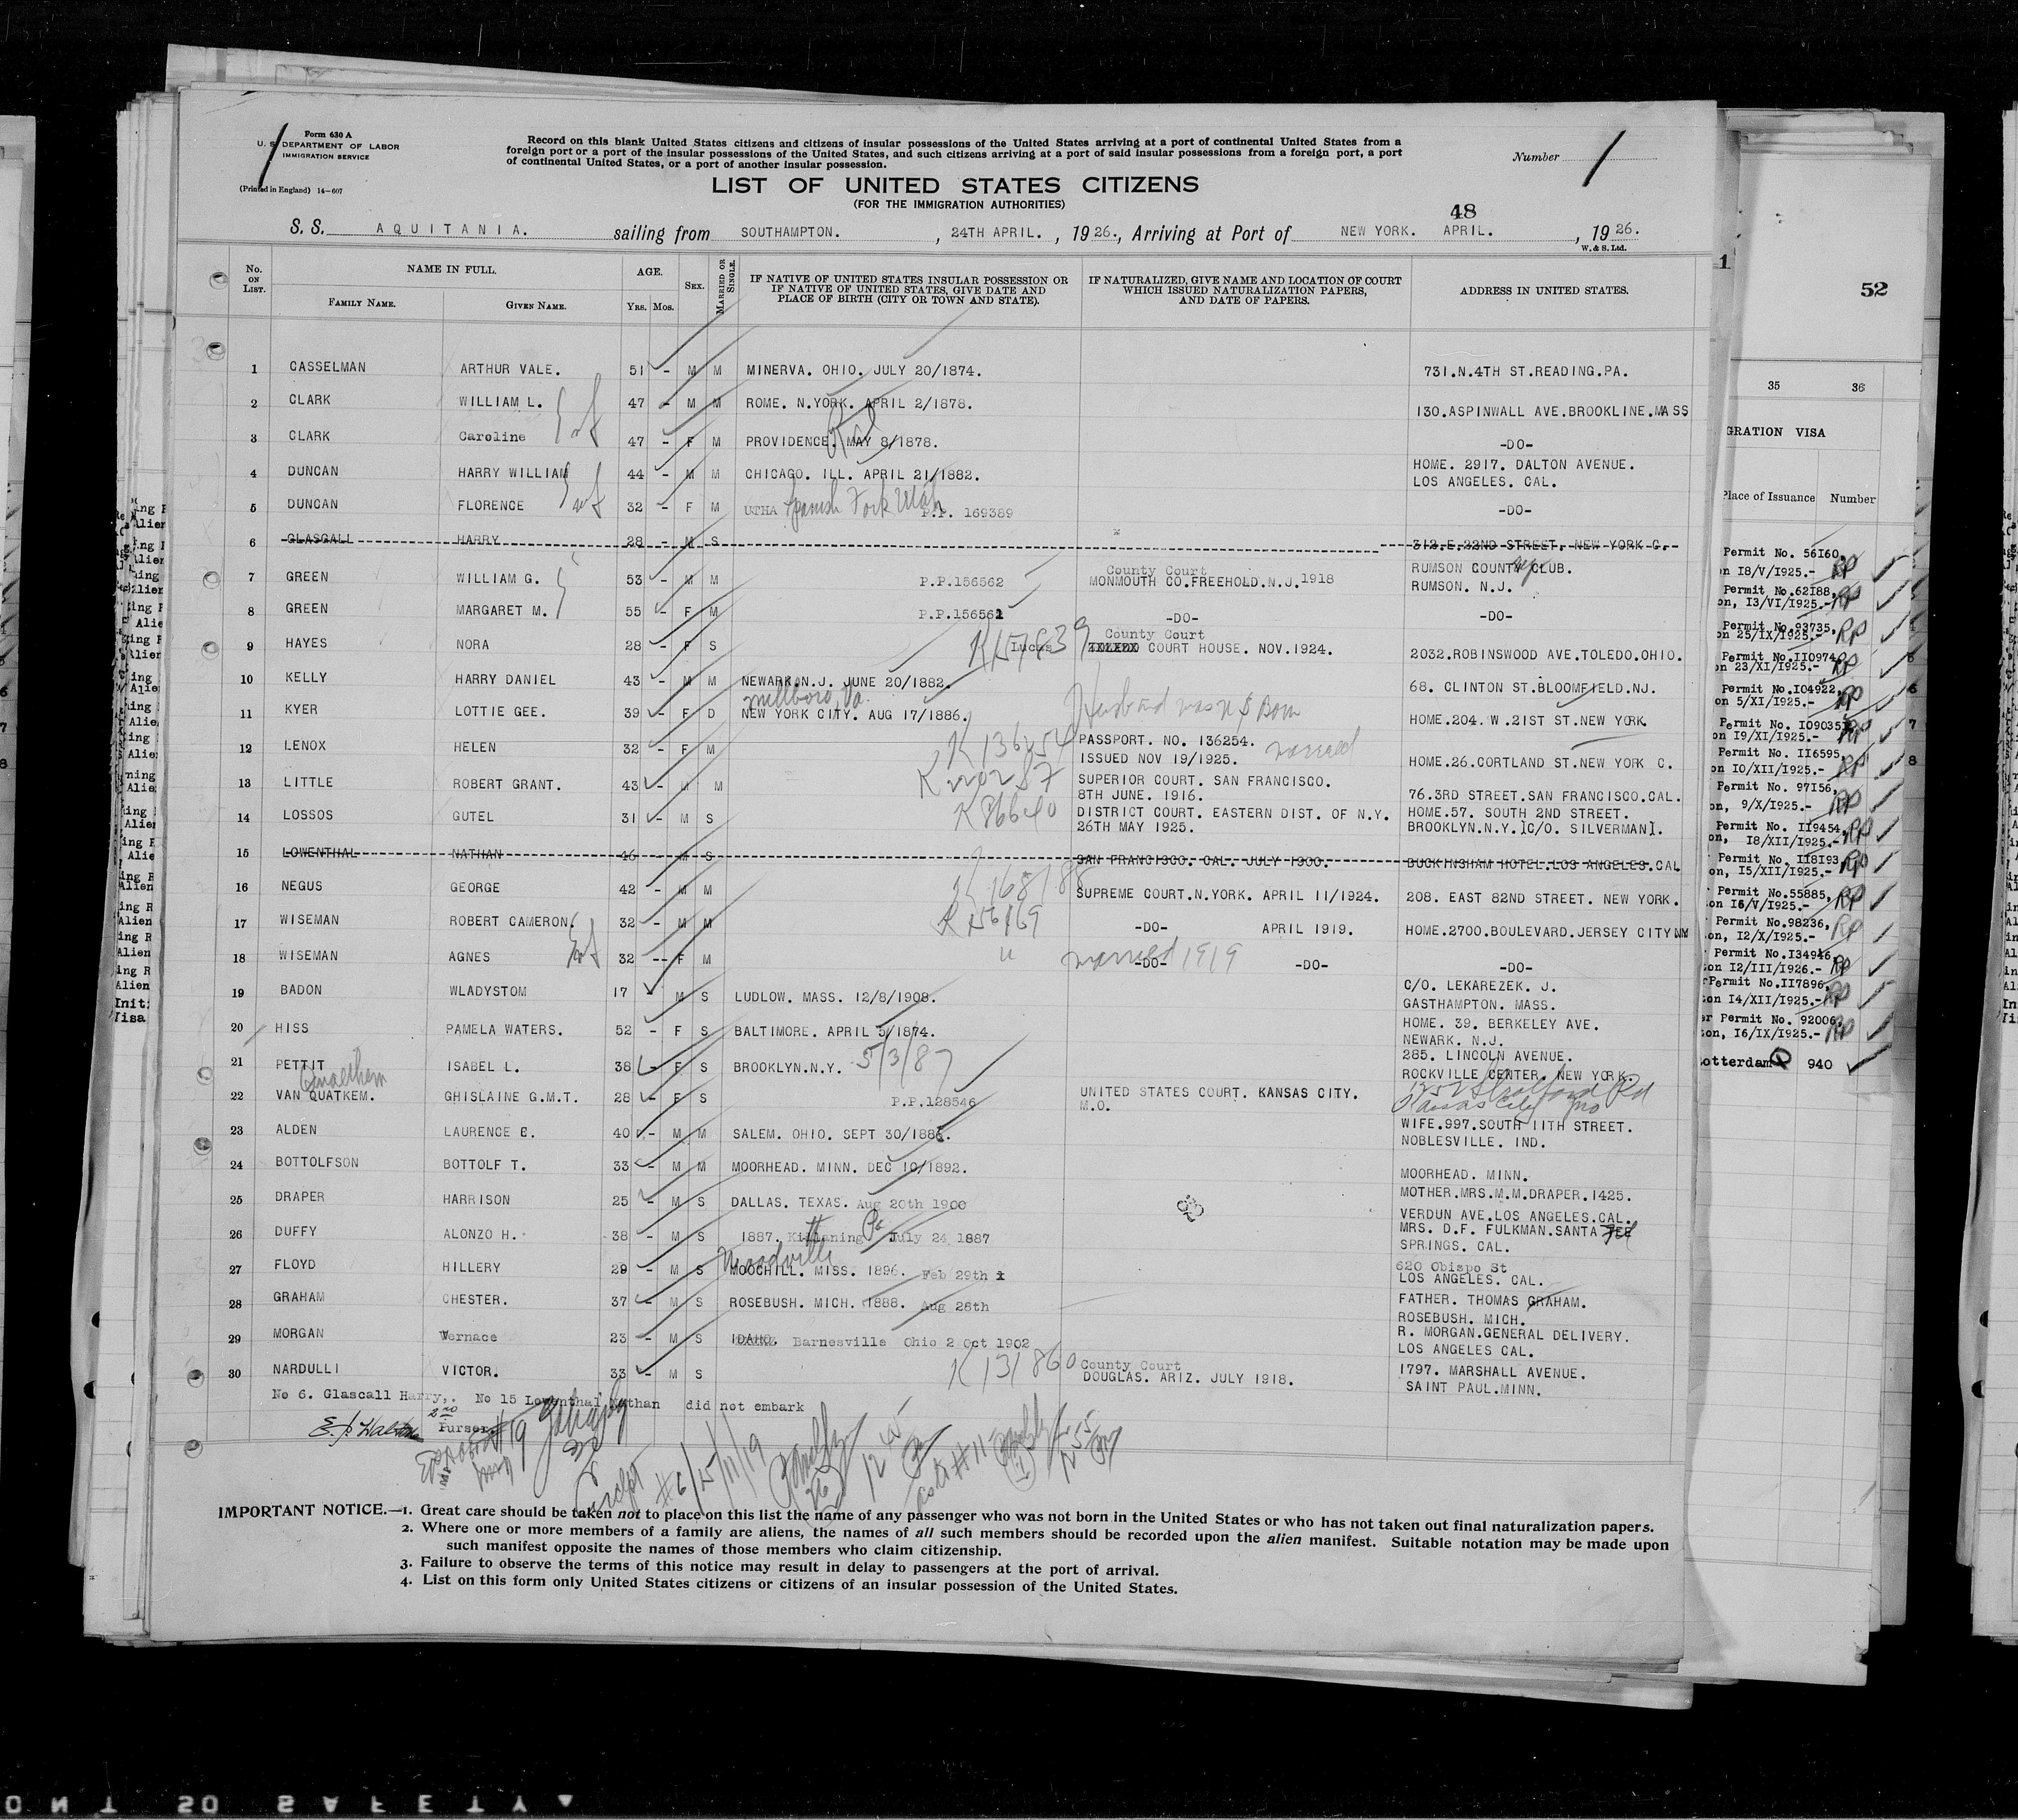 Form 630 A
U. S. DEPARTMENT OF LABOR
IMMIGRATION SERVICE
(Printed in England) 14-607
Record on this blank United States citizens and citizens of insular possessions of the United States arriving at a port of continental United States from a
foreign port or a port of the insular possessions of the United States, and such citizens arriving at a port of said insular possessions from a foreign port, a port
of continental United States, or a port of another insular possession.
Number 1
LIST OF UNITED STATES CITIZENS
(FOR THE IMMIGRATION AUTHORITIES)
48
S.S. AQUITANIA. sailing from SOUTHAMPTON. , 24TH APRIL. , 1926., Arriving at Port of NEW YORK. APRIL. , 1926.
W. & S. Ltd.
No. ON LIST. NAME IN FULL. AGE. SEX. MARRIED OR SINGLE. IF NATIVE OF UNITED STATES INSULAR POSSESSION OR IF NATIVE OF UNITED STATES, GIVE DATE AND PLACE OF BIRTH (CITY OR TOWN AND STATE). IF NATURALIZED, GIVE NAME AND LOCATION OF COURT WHICH ISSUED NATURALIZATION PAPERS, AND DATE OF PAPERS. ADDRESS IN UNITED STATES.
FAMILY NAME. GIVEN NAME. Yrs. Mos.
1 CASSELMAN ARTHUR VALE. 51 - M M MINERVA. OHIO. JULY 20/1874. 731.N.4TH ST.READING.PA.
2 CLARK WILLIAM L. 47 - M M ROME. N.YORK. APRIL 2/1878. 130.ASPINWALL AVE.BROOKLINE.MASS
3 CLARK Caroline 47 - F M PROVIDENCE. MAY 8/1878. -DO-
4 DUNCAN HARRY WILLIAM 44 - M M CHICAGO. ILL. APRIL 21/1882. HOME. 2917. DALTON AVENUE.
LOS ANGELES. CAL.
5 DUNCAN FLORENCE 32 - F M UTHA Spanish Fork Utah P.P. 169389 -DO-
6 GLASGALL HARRY 28 - M S 312.E.22ND STREET. NEW YORK C.
7 GREEN WILLIAM G. 53 - M M P.P.156562 County Court
MONMOUTH CO.FREEHOLD.N.J.1918 RUMSON COUNTY CLUB.
RUMSON. N.J.
8 GREEN MARGARET M. 55 - F M P.P.156561 -DO- -DO-
9 HAYES NORA 28 - F S Lucas County Court
TOLEDO COURT HOUSE. NOV.1924. 2032.ROBINSWOOD AVE.TOLEDO.OHIO.
10 KELLY HARRY DANIEL 43 - M M NEWARK.N.J. JUNE 20/1882. 68. CLINTON ST.BLOOMFIELD.NJ.
Millboro, Va.
11 KYER LOTTIE GEE. 39 - F D NEW YORK CITY. AUG 17/1886. Husband was US Born HOME.204. W.21ST ST.NEW YORK.
12 LENOX HELEN 32 - F M K 136254 PASSPORT. NO. 136254.
ISSUED NOV 19/1925. married HOME.26.CORTLAND ST.NEW YORK C.
13 LITTLE ROBERT GRANT. 43 - M M SUPERIOR COURT. SAN FRANCISCO.
8TH JUNE. 1916. 76.3RD STREET.SAN FRANCISCO.CAL.
14 LOSSOS GUTEL 31 - M S K 86640 DISTRICT COURT. EASTERN DIST. OF N.Y.
26TH MAY 1925. HOME.57. SOUTH 2ND STREET.
BROOKLYN.N.Y.[C/O. SILVERMAN].
15 LOWENTHAL NATHAN 46 - M S SAN FRANCISCO. CAL. JULY 1900. BUCKINGHAM HOTEL.LOS ANGELES.CAL
16 NEGUS GEORGE 42 - M M K 168188 SUPREME COURT.N.YORK. APRIL 11/1924. 208. EAST 82ND STREET. NEW YORK.
17 WISEMAN ROBERT CAMERON. 32 - M M -DO- APRIL 1919. HOME.2700.BOULEVARD.JERSEY CITY
18 WISEMAN AGNES 32 -- F M " married 1919 -DO- -DO- -DO-
19 BADON WLADYSTOM 17 M S LUDLOW. MASS. 12/8/1908. C/O. LEKAREZEK. J.
GASTHAMPTON. MASS.
20 HISS PAMELA WATERS. 52 - F S BALTIMORE. APRIL 5/1874. HOME. 39. BERKELEY AVE.
NEWARK. N.J.
21 PETTIT ISABEL L. 38 - F S BROOKLYN.N.Y. 5/3/87 285. LINCOLN AVENUE.
ROCKVILLE CENTER. NEW YORK.
22 VAN QUATKEM. GHISLAINE G.M.T. 28 - F S P.P.128546 UNITED STATES COURT. KANSAS CITY.
M.O. Kansas City Mo
23 ALDEN LAURENCE E. 40 - M M SALEM. OHIO. SEPT 30/1885. WIFE.997.SOUTH 11TH STREET.
NOBLESVILLE. IND.
24 BOTTOLFSON BOTTOLF T. 33 - M M MOORHEAD. MINN. DEC 10/1892. MOORHEAD. MINN.
25 DRAPER HARRISON 25 - M S DALLAS. TEXAS. Aug 20th 1900 MOTHER.MRS.M.M.DRAPER.1425.
VERDUN AVE.LOS ANGELES.CAL.
26 DUFFY ALONZO H. 38 - M S 1887. Kittaning Pa July 24 1887 MRS. D.F. FULKMAN.SANTA FEE
SPRINGS. CAL.
Woodville
27 FLOYD HILLERY 29 - M S MOOCHILL. MISS. 1896. Feb 29th 620 Obispo St
LOS ANGELES. CAL.
28 GRAHAM CHESTER. 37 - M S ROSEBUSH. MICH. 1888. Aug 28th FATHER. THOMAS GRAHAM.
ROSEBUSH. MICH.
29 MORGAN Vernace 23 - M S IDAHO. Barnesville Ohio 2 Oct 1902 R. MORGAN.GENERAL DELIVERY.
LOS ANGELES CAL.
30 NARDULLI VICTOR. 33 - M S K 131860 County Court
DOUGLAS. ARIZ. JULY 1918. 1797. MARSHALL AVENUE.
SAINT PAUL.MINN.
No 6. Glascall Harry,. No 15 Lowenthal Nathan did not embark
2nd
Purser.
IMPORTANT NOTICE.—1. Great care should be taken not to place on this list the name of any passenger who was not born in the United States or who has not taken out final naturalization papers.
2. Where one or more members of a family are aliens, the names of all such members should be recorded upon the alien manifest. Suitable notation may be made upon
such manifest opposite the names of those members who claim citizenship.
3. Failure to observe the terms of this notice may result in delay to passengers at the port of arrival.
4. List on this form only United States citizens or citizens of an insular possession of the United States.
1
52
35 36
GRATION VISA
Place of Issuance Number
Permit No. 56I60,
on I8/V/I925.- RP
Permit No. 62I88,
on, I3/VI/I925.- RP
Permit No.93735,
on 25/IX/I925.- RP
Permit No.II0974,
on 23/XI/I925.- RP
Permit No.I04922,
on 5/XI/I925.- RP
Permit No. I09035
on I9/XI/I925.- RP
Permit No. II6595,
on I0/XII/I925.- RP
Permit No. 97I56,
on, 9/X/I925.- RP
Permit No. II9454,
on, I8/XII/I925.- RP
Permit No. II8I93,
on, I5/XII/I925.- RP
Permit No.55885,
on I6/V/I925.- RP
Permit No.98236,
on, I2/X/I925.- RP
Permit No.I34946,
on I2/III/I926.- RP
Permit No.II7896,
on I4/XII/I925.- RP
Permit No. 92006,
on, I6/IX/I925.- RP
otterdam 940
SAFETY